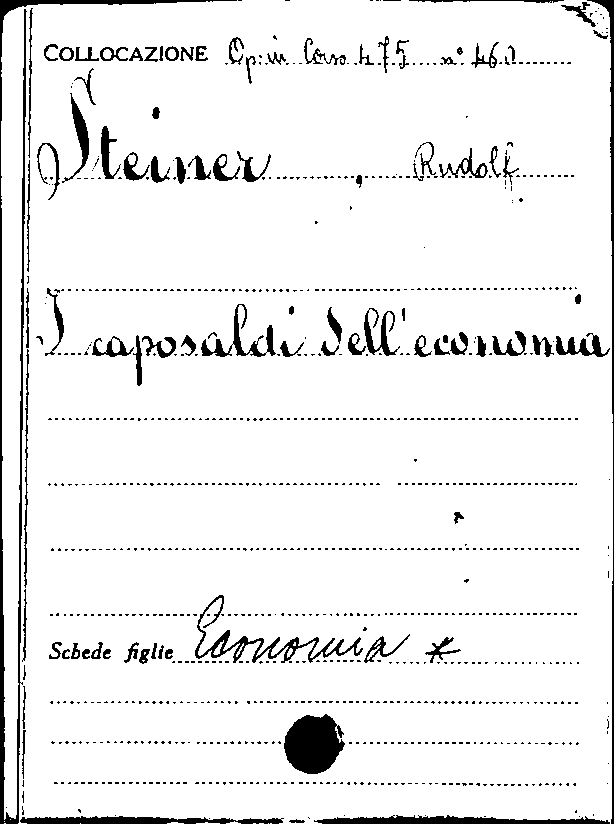 COLLOCAZIONE Op: in Corso 475 n° 460
Steiner, Rudolf
I caposaldi dell'economia
Schede figlie Economia *